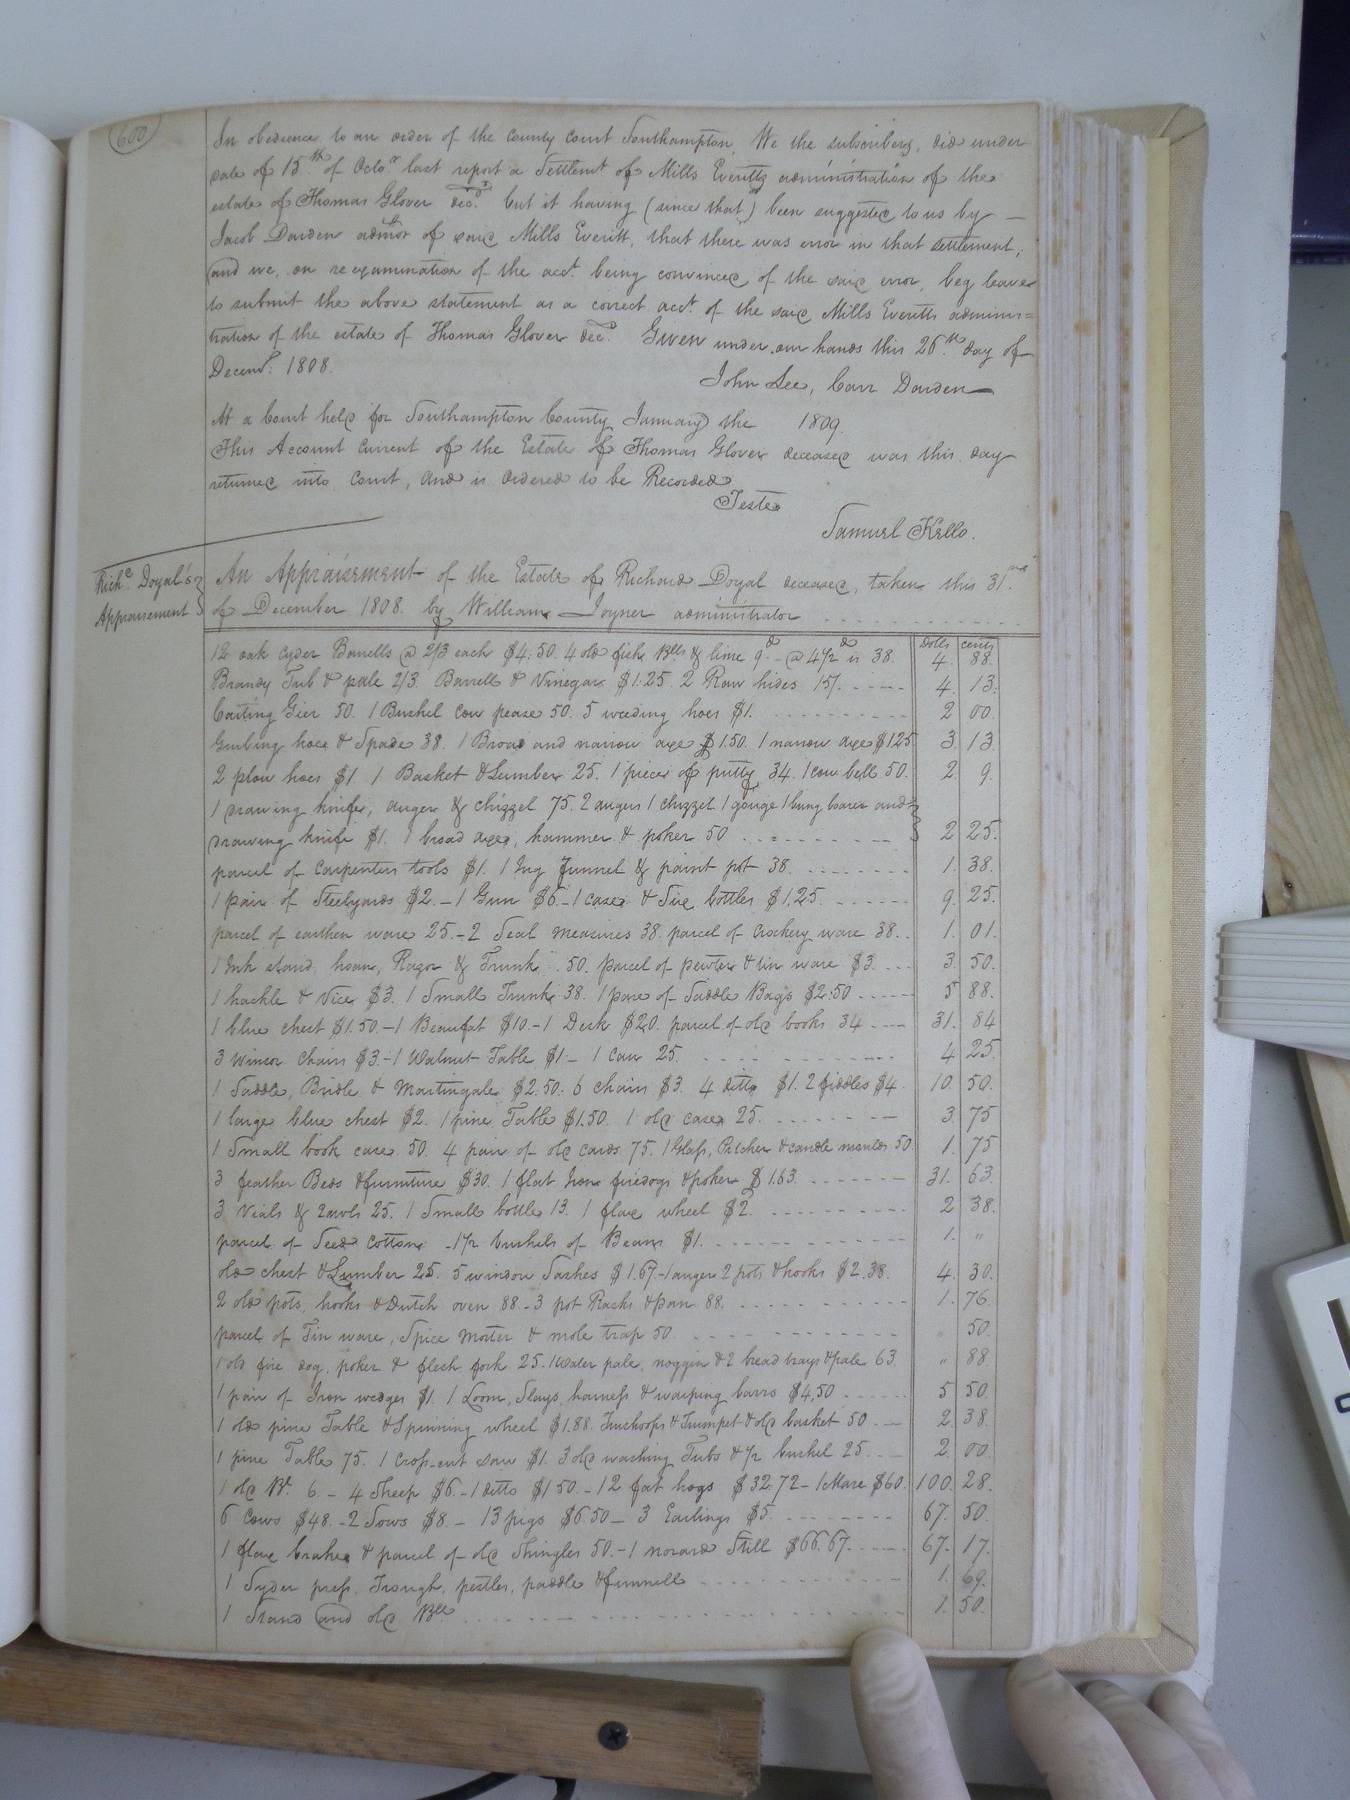 600
In obedience to an order of the County Court Southampton, We the subscribers, did under
date of 15th of Octor last report a Settlemt of Mills Everitts administration of the
estate of Thomas Glover decd. but it having (since that) been suggested to us by —
Jacob Darden admor of said Mills Everitt, that there was error in that settlement,
and we, on reexamination of the acct being convinced of the said error, beg leave
to submit the above statement as a correct acct of the said Mills Everitts adminis=
tration of the estate of Thomas Glover decd. Given under our hands this 26th day of
Decemr. 1808.
John Lee, Carr Darden
At a Court held for Southampton County January the 1809.
This Account Current of the Estate of Thomas Glover deceased was this day
returned into Court, and is ordered to be Recorded
Teste
Samuel Kello.
Richd. Doyal's
Appraisement
An Appraisement of the Estate of Richard Doyal deceased, taken this 31
of December 1808. by William Joyner administrator
Dolls cents
12 oak Cyder Barrells @ 2/3 each $4.50. 4 old fish Blls & lime 9d - @ 4½d is 38. 4. 88.
Brandy Tub & pale 2/3. Barrell & Vinegar $1.25. 2 Raw hides 4. 13.
Carting Gier 50. 1 Bushel Cow pease 50. 5 weeding hoes $1. 2 00.
Grubing hoes & Spade 38. 1 Broad and narrow axe $1.50. 1 narrow axe $1.25 3. 13.
2 plow hoes $1. 1 Basket & Lumber 25. 1 piece of putty 34. 1 cow bell 50. 2. 9.
1 drawing knife, auger & chizzel 75. 2 augers 1 chizzel 1 gouge 1 bung borer and
drawing knife $1. 1 broad axe, hammer & poker 50 2 25.
parcel of Carpenters tools $1. 1 Jug Funnel & paint pot 38. 1. 38.
1 pair of Steelyards $2. - 1 Gun $6. - 1 case & Six bottles $1.25. 9. 25.
parcel of earthen ware 25. - 2 Seal measures 38. parcel of Crockery ware 38. 1. 01.
1 Ink stand, hoan, Razor & Trunk .50. parcel of pewter & tin ware $3. 3. 50.
1 hackle & Vice $3. 1 Small Trunk 38. 1 pare of Saddle Bags $2.50 5 88.
1 blue chest $1.50 - 1 Beaufat $10. - 1 Desk $20. parcel of old books 34 31. 84
3 Winsor Chairs $3. - 1 Walnut Table $1 - 1 Can 25. 4 25.
1 Saddle, Bridle & Martingale $2.50. 6 chairs $3. 4 ditto $1. 2 fiddles $4. 10 50.
1 large blue chest $2. 1 pine Table $1.50. 1 old case 25. 3. 75
1 Small book case 50. 4 pair of old cards 75. 1 Glass, Pitcher & candle moulds 50. 1. 75
3 feather Beds & furniture $30. 1 flat Iron firedogs & poker $1.63. 31. 63.
3 Vials & 2 awls 25. 1 Small bottle 13. 1 flax wheel $2. 2 38.
parcel of Seed Cotton - 1½ bushels of Beans $1. 1. "
old chest & Lumber 25. 5 window Sashes $1.67 - 1 auger 2 pots & hooks $2.38. 4. 30.
2 old pots, hooks & Dutch oven 88. - 3 pot Racks & pan 88. 1. 76.
parcel of Tin ware, Spice Morter & mole trap 50. " 50.
1 old fire dog, poker & flesh fork 25. 1 Water pale, noggin & 2 bread trays & pale 63. " 88.
1 pair of Iron wedges $1. 1 Loom, Slays, harness & warping barrs $4.50 5 50.
1 old pine Table & Spinning wheel $1.88. Trusshoops & Trumpet & old basket 50 2 38.
1 pine Table 75. 1 Cross-cut saw $1. 3 old washing Tubs & ½ bushel 25. 2. 00.
1 old Bl. 6. - 4 Sheep $6. - 1 ditto $1.50. - 12 fat hogs $32.72 - 1 Mare $60. 100. 28.
6 Cows $48. - 2 Sows $8. - 13 pigs $6.50 - 3 Earlings $5. 67. 50.
1 flax brake & parcel of old Shingles 50. - 1 Still $66.67 67. 17.
1 Syder press, Trough, pestles, paddle & funnell 1. 69.
1 Stand and old Bll 1. 50.